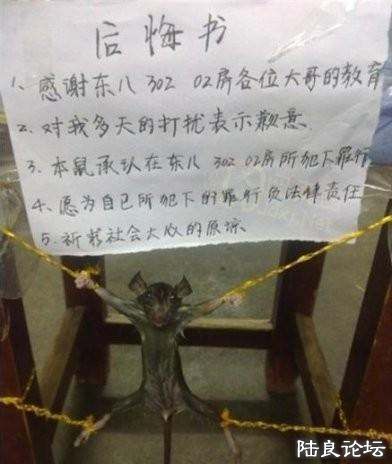 后悔书
1、感谢东八 302 02房各位大哥的教育
2、对我多天的打扰表示歉意
3、本鼠承认在东八 302 02房所犯下罪行
4、愿为自己所犯下的罪行负法律责任
5、祈求社会大众的原谅
陆良论坛